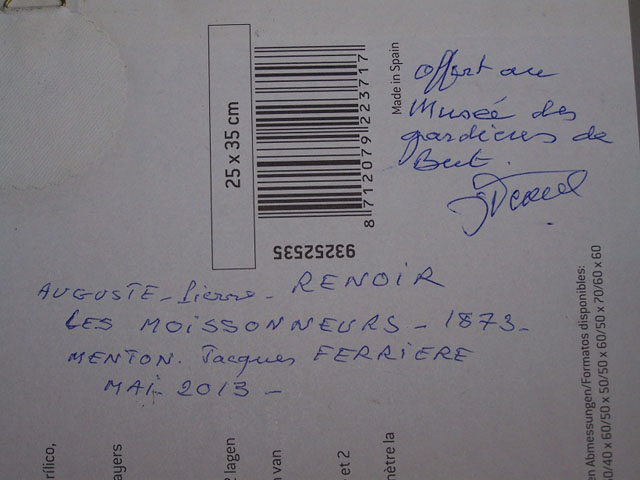 25 x 35 cm
8 712079 223717
Made in Spain
93252535
offert au
Musée des
gardiens de
But.
AUGUSTE - Pierre - RENOIR
LES MOISSONNEURS - 1873 -
MENTON. Jacques FERRIERE
MAI 2013 -
rílico,
ayers
2 lagen
van
et 2
mètre la
en Abmessungen/Formatos disponibles:
0/40 x 60/50 x 50/50 x 60/50 x 70/60 x 60